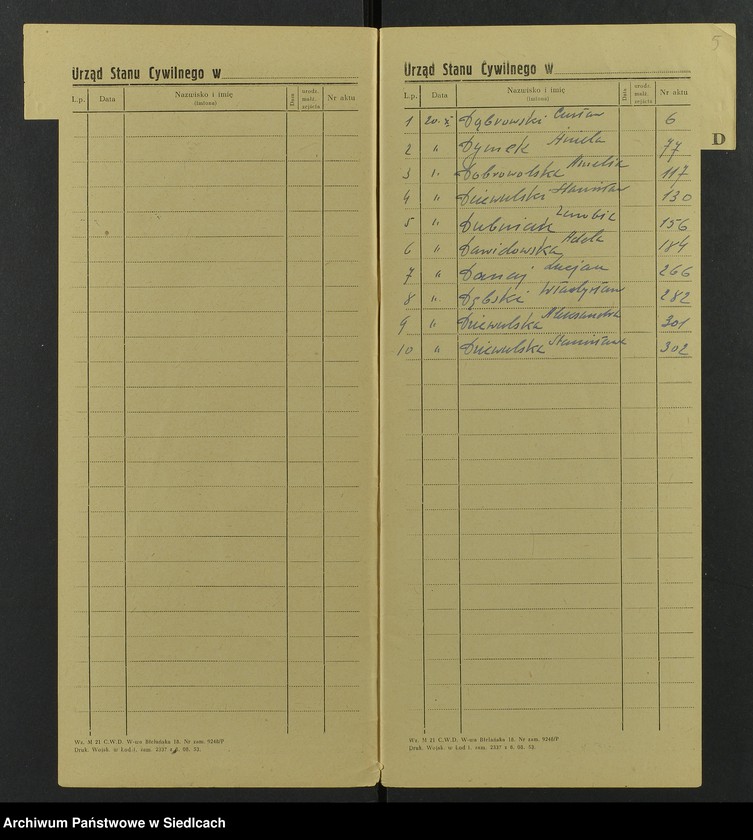 Urząd Stanu Cywilnego w
L.p. Data Nazwisko i imię (imiona) Data urodz. małż. zejścia Nr aktu
Wz. M 21 C.W.D. W-wa Bielańska 18. Nr zam. 9248/P
Druk. Wojsk. w Łodzi. zam. 2337 z 8. 08. 52.
5
Urząd Stanu Cywilnego w
L.p. Data Nazwisko i imię (imiona) Data urodz. małż. zejścia Nr aktu
D
1 20. X Dąbrowski Gustaw 6
2 " Dymek Aniela 77
3 " Dobrowolska Amelia 117
4 " Dziewulski Stanisław 130
5 " Dubniak Zenobia 156
6 " Dawidowska Adela 184
7 " Danaj Lucjan 266
8 " Dębski Władysław 282
9 " Dziewulska Aleksandra 301
10 " Dziewulska Stanisława 302
Wz. M 21 C.W.D. W-wa Bielańska 18. Nr zam. 9248/P
Druk. Wojsk. w Łodzi. zam. 2337 z 8. 08. 52.
Archiwum Państwowe w Siedlcach